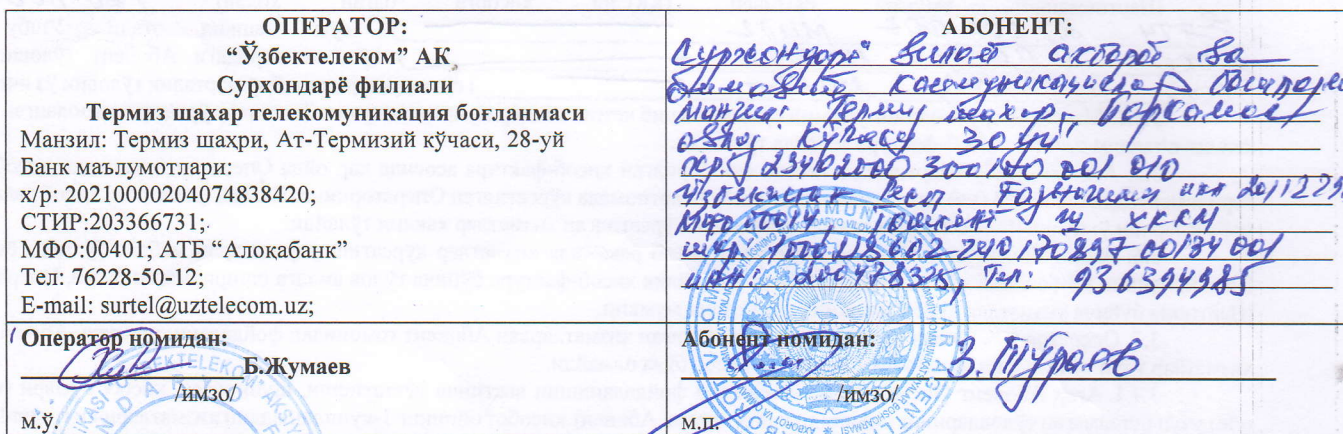 ОПЕРАТОР:
“Ўзбектелеком” АК
Сурхондарё филиали
Термиз шахар телекомуникация боғланмаси
Манзил: Термиз шаҳри, Ат-Термизий кўчаси, 28-уй
Банк маълумотлари:
х/р: 20210000204074838420;
СТИР:203366731;
МФО:00401; АТБ “Алоқабанк”
Тел: 76228-50-12;
E-mail: surtel@uztelecom.uz;
Оператор номидан:
Б.Жумаев
/имзо/
м.ў.
АБОНЕНТ:
Сурхондарё вилоят ахборот ва
Манзил: Термиз шахар, Баркамол
авлод кўчаси 30 уй,
х/р: 23402000300100001010
Ўзбекистон Респ Ғазначилиги инн 2011229
Мфо 00014 Тошкент ш ХККМ
инн: 200478325, Тел: 936394985
Абонент номидан:
З. Тўраев
/имзо/
м.п.